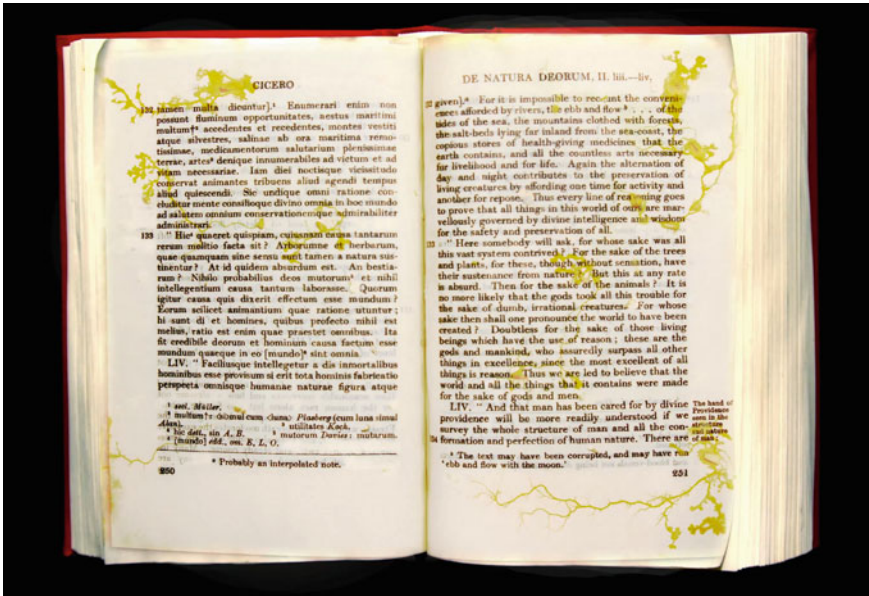 CICERO
132 tamen multa dicuntur].¹ Enumerari enim non
possunt fluminum opportunitates, aestus maritimi
multum†² accedentes et recedentes, montes vestiti
atque silvestres, salinae ab ora maritima remo-
tissimae, medicamentorum salutarium plenissimae
terrae, artes³ denique innumerabiles ad victum et ad
vitam necessariae. Iam diei noctisque vicissitudo
conservat animantes tribuens aliud agendi tempus
aliud quiescendi. Sic undique omni ratione con-
cluditur mente consilioque divino omnia in hoc mundo
ad salutem omnium conservationemque admirabiliter
administrari.
133 " Hic⁴ quaeret quispiam, cuiusnam causa tantarum
rerum molitio facta sit? Arborumne et herbarum,
quae quamquam sine sensu sunt tamen a natura sus-
tinentur? At id quidem absurdum est. An bestia-
rum? Nihilo probabilius deos mutorum⁵ et nihil
intellegentium causa tantum laborasse. Quorum
igitur causa quis dixerit effectum esse mundum?
Eorum scilicet animantium quae ratione utuntur;
hi sunt di et homines, quibus profecto nihil est
melius, ratio est enim quae praestet omnibus. Ita
fit credibile deorum et hominum causa factum esse
mundum quaeque in eo [mundo]⁶ sint omnia.
LIV. " Faciliusque intellegetur a dis inmortalibus
hominibus esse provisum si erit tota hominis fabricatio
perspecta omnisque humanae naturae figura atque
¹ secl. Müller.
² multum (cum luna) Plasberg (cum luna simul
³ utilitates Kock.
⁴ hic dett., sin A, B. ⁵ mutorum Davies: mutarum.
⁶ [mundo] edd., om. E, L, O.
ᵃ Probably an interpolated note.
250
DE NATURA DEORUM, II. liii.—liv.
given].ᵃ For it is impossible to recount the conveni-
ences afforded by rivers, the ebb and flow ᵇ . . . of the
tides of the sea, the mountains clothed with forests,
the salt-beds lying far inland from the sea-coast, the
copious stores of health-giving medicines that the
earth contains, and all the countless arts necessary
for livelihood and for life. Again the alternation of
day and night contributes to the preservation of
living creatures by affording one time for activity and
another for repose. Thus every line of reasoning goes
to prove that all things in this world of ours are mar-
vellously governed by divine intelligence and wisdom
for the safety and preservation of all.
133 " Here somebody will ask, for whose sake was all
this vast system contrived? For the sake of the trees
and plants, for these, though without sensation, have
their sustenance from nature? But this at any rate
is absurd. Then for the sake of the animals? It is
no more likely that the gods took all this trouble for
the sake of dumb, irrational creatures. For whose
sake then shall one pronounce the world to have been
created? Doubtless for the sake of those living
beings which have the use of reason; these are the
gods and mankind, who assuredly surpass all other
things in excellence, since the most excellent of all
things is reason. Thus we are led to believe that the
world and all the things that it contains were made
for the sake of gods and men.
LIV. " And that man has been cared for by divine
providence will be more readily understood if we
survey the whole structure of man and all the con-
134 formation and perfection of human nature. There are
The hand of
Providence
seen in the
structure
and nature
of man;
ᵇ The text may have been corrupted, and may have run
'ebb and flow with the moon.'
251